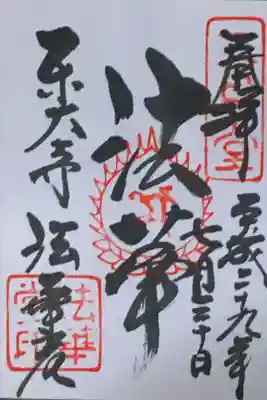 奉拝
平成二十九年
七月
法華
東大寺 法華堂
法華堂印